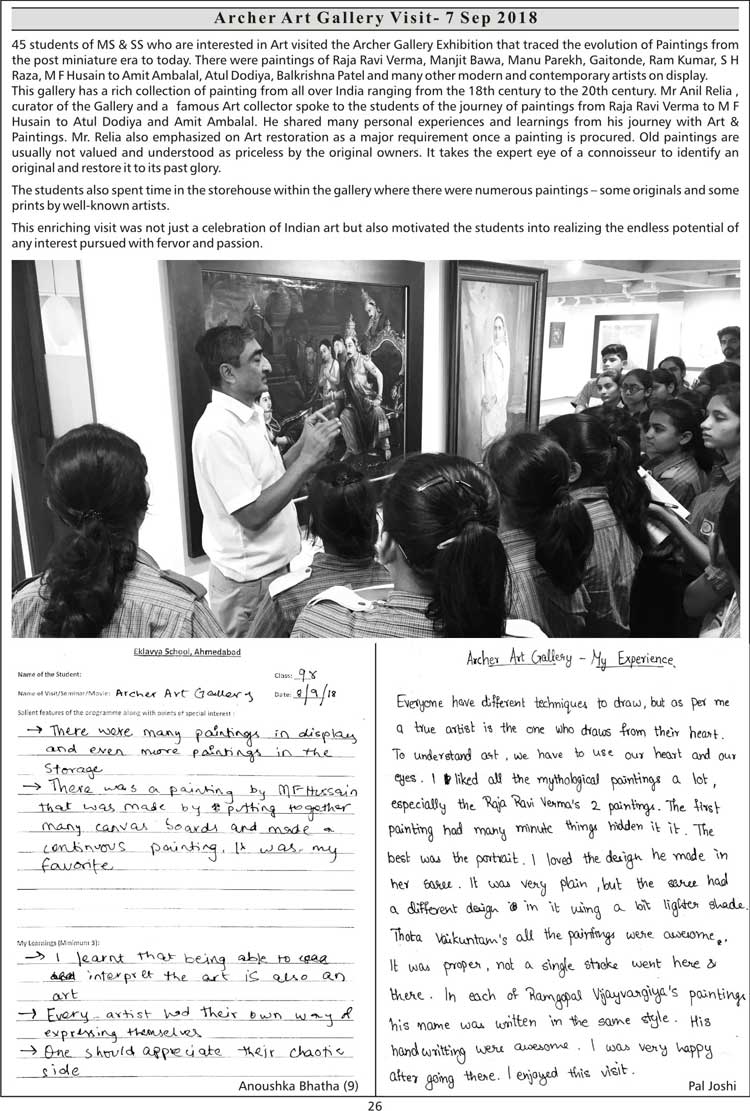 Archer Art Gallery Visit- 7 Sep 2018
45 students of MS & SS who are interested in Art visited the Archer Gallery Exhibition that traced the evolution of Paintings from
the post miniature era to today. There were paintings of Raja Ravi Verma, Manjit Bawa, Manu Parekh, Gaitonde, Ram Kumar, S H
Raza, M F Husain to Amit Ambalal, Atul Dodiya, Balkrishna Patel and many other modern and contemporary artists on display.
This gallery has a rich collection of painting from all over India ranging from the 18th century to the 20th century. Mr Anil Relia ,
curator of the Gallery and a famous Art collector spoke to the students of the journey of paintings from Raja Ravi Verma to M F
Husain to Atul Dodiya and Amit Ambalal. He shared many personal experiences and learnings from his journey with Art &
Paintings. Mr. Relia also emphasized on Art restoration as a major requirement once a painting is procured. Old paintings are
usually not valued and understood as priceless by the original owners. It takes the expert eye of a connoisseur to identify an
original and restore it to its past glory.
The students also spent time in the storehouse within the gallery where there were numerous paintings – some originals and some
prints by well-known artists.
This enriching visit was not just a celebration of Indian art but also motivated the students into realizing the endless potential of
any interest pursued with fervor and passion.
Eklavya School, Ahmedabad
Name of the Student:
Class: 9X
Name of Visit/Seminar/Movie: Archer Art Gallery
Date: 8/9/18
Salient features of the programme along with points of special interest :
→ There were many paintings in display
and even more paintings in the
Storage
→ There was a painting by MF Hussain
that was made by putting together
many canvas boards and made a
continuous painting. It was my
favorite
My Learnings (Minimum 3):
→ I learnt that being able to
interpret the art is also an
art
→ Every artist had their own way of
expressing themselves
→ One should appreciate their chaotic
side
Anoushka Bhatha (9)
Archer Art Gallery – My Experience
Everyone have different techniques to draw, but as per me
a true artist is the one who draws from their heart.
To understand art, we have to use our heart and our
eyes. I liked all the mythological paintings a lot,
especially the Raja Ravi Verma's 2 paintings. The first
painting had many minute things hidden it it. The
best was the portrait. I loved the design he made in
her saree. It was very plain, but the saree had
a different design in it using a bit lighter shade.
Thota Vaikuntam's all the paintings were awesome.
It was proper, not a single stroke went here &
there. In each of Ramgopal Vijayvargiya's paintings
his name was written in the same style. His
handwritting were awesome. I was very happy
after going there. I enjoyed this visit.
Pal Joshi
26